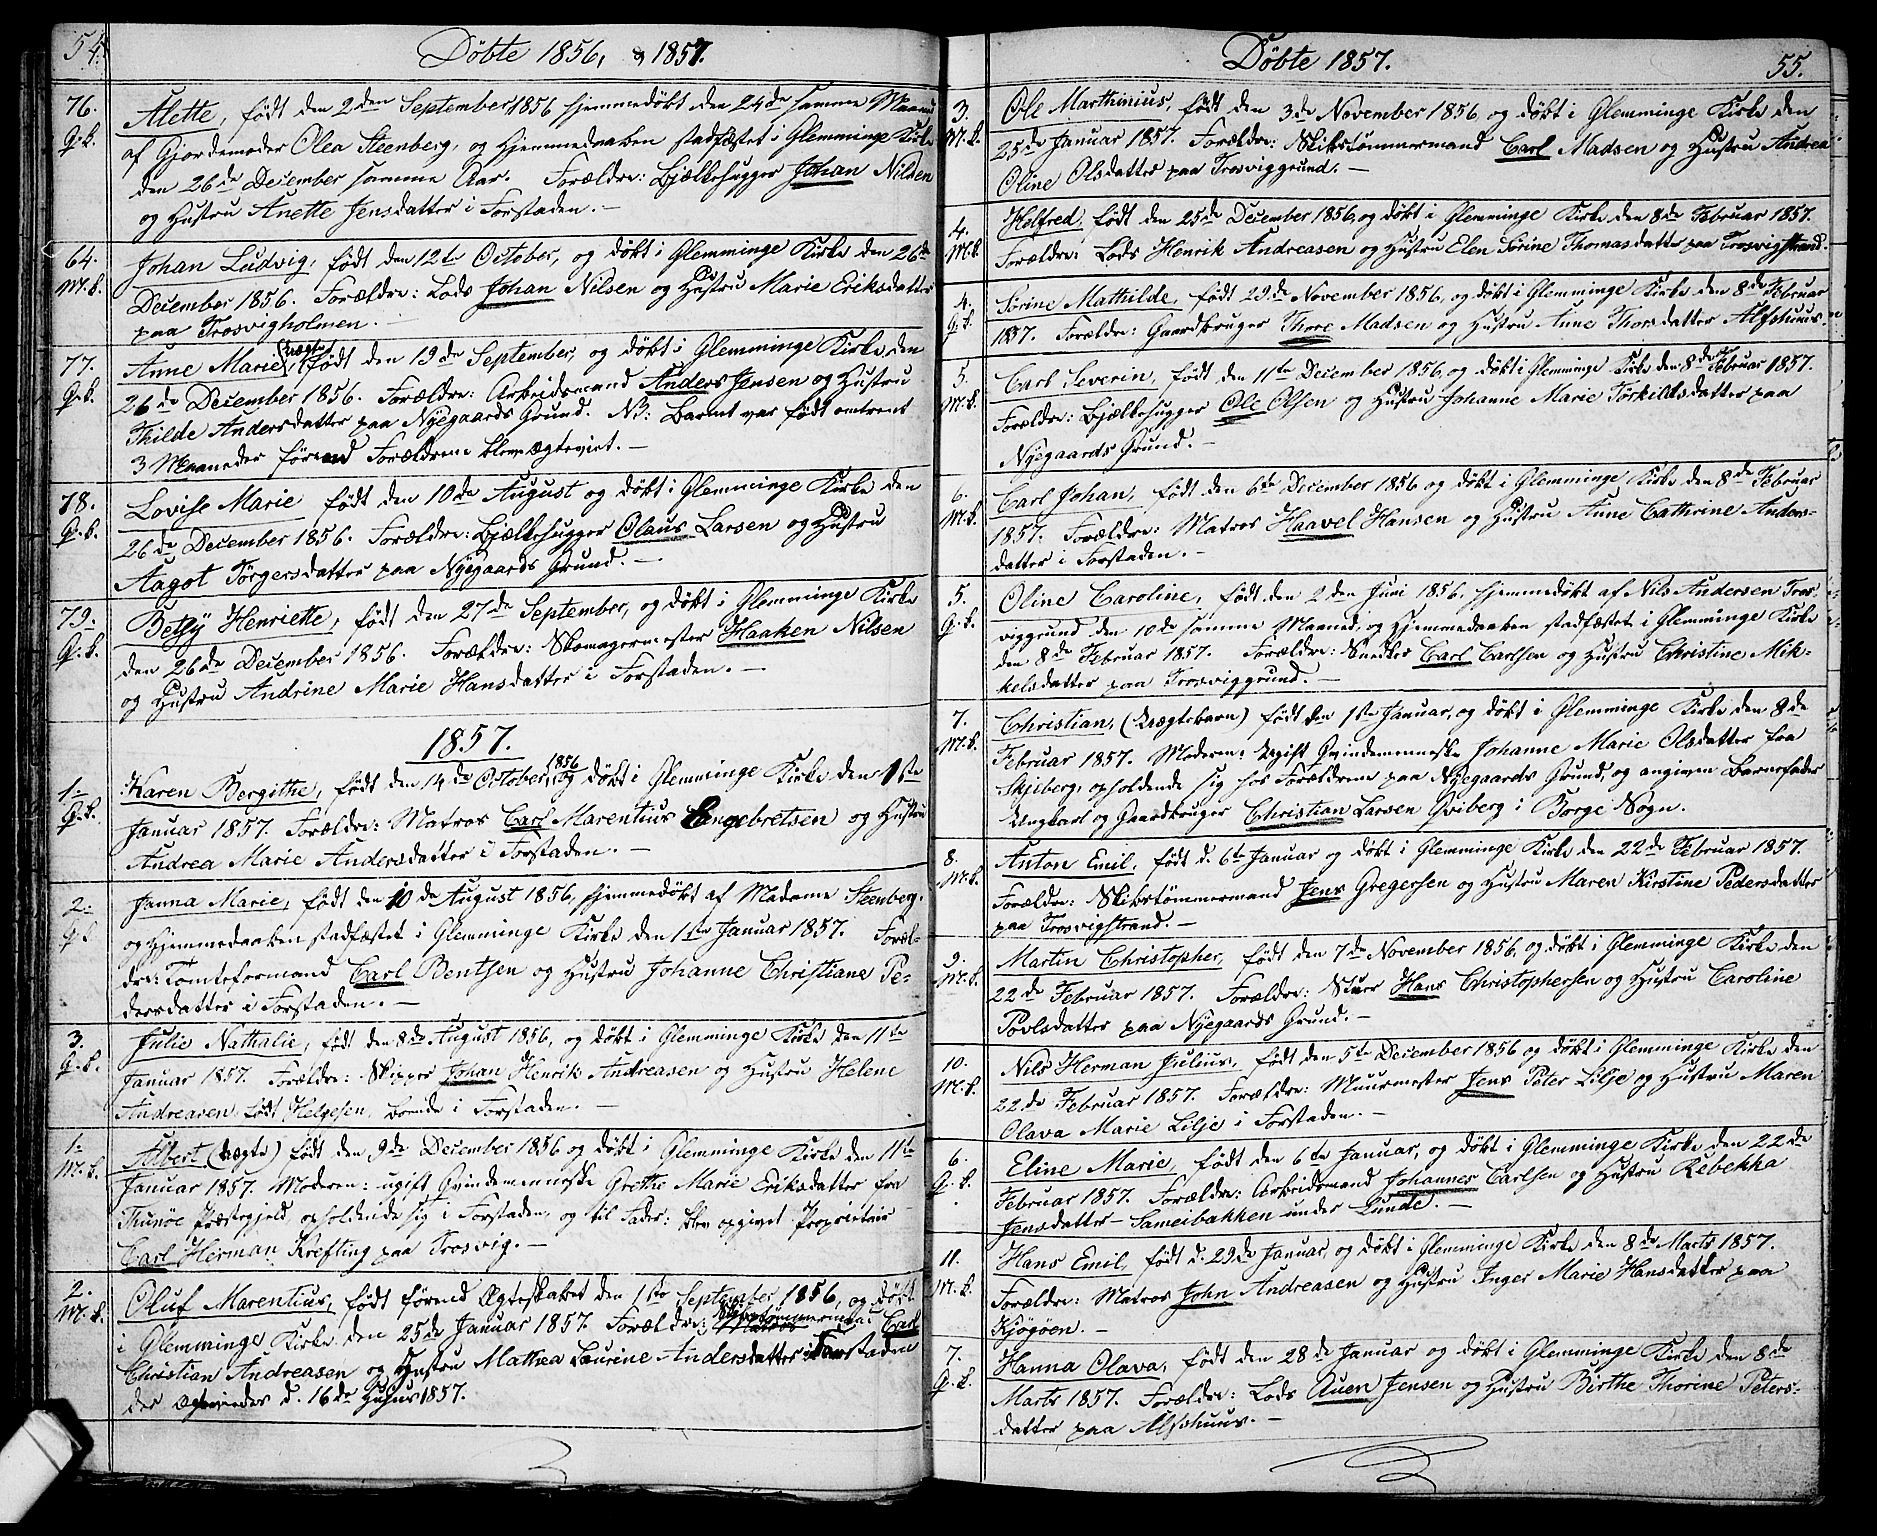 54.
Döbte 1856, & 1857.
76.
Q. k.
Alette, født den 2den September 1856 hjemmedøbt den 24de samme Maaned
af Gjordemoder Olea Steenberg, og Hjemmedaaben stadfæstet i Glemminge Kirke
den 26de December samme Aar. Forældre: Bjælkehugger Johan Nilsen
og Hustru Anette Jensdatter i Forstaden. —
64.
M. k.
Johan Ludvig, født den 12te October, og døbt i Glemminge Kirke den 26de
December 1856. Forældre: Lods Johan Nilsen og Hustru Marie Eriksdatter
paa Trosvigholmen. —
77.
Q. k.
Anne Marie (uægte) født den 19de September, og døbt i Glemminge Kirke den
26de December 1856. Forældre: Arbeidsmand Anders Jensen og Hustru
Thilde Andersdatter paa Nyegaards Grund. NB: Barnet var født omtrent
3 Maaneder førend Forældrene blev ægteviet. —
78.
Q. k.
Lovise Marie født den 10de August og døbt i Glemminge Kirke den
26de December 1856. Forældre: Bjælkehugger Olaus Larsen og Hustru
Aagot Törgersdatter paa Nyegaards Grund. —
79.
Q. k.
Betsy Henriette, født den 27de September, og døbt i Glemminge Kirke
den 26de December 1856. Forældre: Skomagermester Haaken Nilsen
og Hustru Andrine Marie Hansdatter i Forstaden. —
1857.
1.
Q. k.
Karen Bergithe, født den 14de October 1856, og døbt i Glemminge Kirke den 1ste
Januar 1857. Forældre: Matros Carl Marentius Engebretsen og Hustru
Andrea Marie Andersdatter i Forstaden. —
2.
Q. k.
Janna Marie, født den 10de August 1856, hjemmedøbt af Madame Steenberg,
og Hjemmedaaben stadfæstet i Glemminge Kirke den 1ste Januar 1857. Foræl-
dre: Tomteformand Carl Bentsen og Hustru Johanne Christiane Pe-
dersdatter i Forstaden. —
3.
Q. k.
Julie Nathalie, født den 8de August 1856, og døbt i Glemminge Kirke den 11te
Januar 1857. Forældre: Skipper Johan Henrik Andreasen og Hustru Helene
Andreasen født Helgesen, boende i Forstaden. —
1.
M. k.
Albert (uægte) født den 9de December 1856 og døbt i Glemminge Kirke den 11te
Januar 1857. Moderen: ugift Qvindemenneske Grethe Marie Eriksdatter fra
Thunöe Præstegjeld, opholdende sig i Forstaden, og til Fader: blev opgivet Proprietair
Carl Herman Krefting paa Trosvig. —
2.
M. k.
Oluf Marentius, født førend Ægteskabet den 1ste September 1856, og døbt
i Glemminge Kirke den 25de Januar 1857. Forældre: Skibstømmermand Carl
Christian Andreasen og Hustru Mathea Laurine Andersdatter i Forstaden
der ægteviedes d. 16de 1857.
Döbte 1857.
55.
3.
M. k.
Ole Marthinius, født den 3de November 1856, og døbt i Glemminge Kirke den
25de Januar 1857. Forældre: Skibstømmermand Carl Madsen og Hustru Andrea
Oline Olsdatter paa Trosviggrund. —
4.
M. k.
Holfred, født den 25de December 1856, og døbt i Glemminge Kirke den 8de Februar 1857.
Forældre: Lods Henrik Andreasen og Hustru Elen Sörine Thomasdatter paa Trosvigstrand.
4.
Q. k.
Sörine Mathilde, født 29de November 1856, og døbt i Glemminge Kirke den 8de Februar
1857. Forældre: Gaardbruger Thore Madsen og Hustru Anne Thorsdatter Alfshuus.
5.
M. k.
Carl Severin, født den 11te December 1856, og døbt i Glemminge Kirke den 8de Februar 1857.
Forældre: Bjælkehugger Ole Olsen og Hustru Johanne Marie Törkildsdatter paa
Nyegaards Grund. —
6.
M. k.
Carl Johan, født den 6te December 1856 og døbt i Glemminge Kirke den 8de Februar
1857. Forældre: Matros Haavel Hansen og Hustru Anne Cathrine Anders-
datter i Forstaden. —
5.
Q. k.
Oline Caroline, født den 2den Juni 1856, hjemmedøbt af Nils Andersen Tros-
viggrund den 10de samme Maaned, og Hjemmedaaben stadfæstet i Glemminge Kirke
den 8de Februar 1857. Forældre: Snedker Carl Carlsen og Hustru Christine Mik-
kelsdatter paa Trosviggrund. —
7.
M. k.
Christian, (Uægtebarn) født den 1ste Januar, og døbt i Glemminge Kirke den 8de
Februar 1857. Moderen: Ugift Qvindemenneske Johanne Marie Olsdatter fra
Skjeberg, opholdende sig hos Forældrene paa Nyegaards Grund, og angiven Barnefader
Ungkarl og Gaardbruger Christian Larsen Qviberg i Borge Sogn.
8.
M. k.
Anton Emil, født d. 6te Januar og døbt i Glemminge Kirke den 22de Februar 1857.
Forældre: Skibstømmermand Jens Gregersen og Hustru Maren Kirstine Pedersdatter
paa Trosvigstrand. —
9.
M. k.
Martin Christopher, født den 7de November 1856, og døbt i Glemminge Kirke den
22de Februar 1857. Forældre: Stuer Hans Christophersen og Hustru Caroline
Povlsdatter paa Nyegaards Grund. —
10.
M. k.
Nils Herman Julius, født den 5te December 1856 og døbt i Glemminge Kirke den
22de Februar 1857. Forældre: Muurmester Jens Peter Lilje og Hustru Maren
Olava Marie Lilje i Forstaden. —
6.
Q. k.
Eline Marie, født den 6te Januar, og døbt i Glemminge Kirke den 22de
Februar 1857. Forældre: Arbeidsmand Johannes Carlsen og Hustru Rebekka
Jensdatter — Sameibakken under Lunde. —
11.
M. k.
Hans Emil, født d. 29de Januar, og døbt i Glemminge Kirke den 8de Marts 1857.
Forældre: Matros John Andreasen og Hustru Inger Marie Hansdatter paa
Kjøgöen. —
7.
Q. k.
Hanna Olava, født den 28de Januar og døbt i Glemminge Kirke den 8de
Marts 1857. Forældre: Lods Auen Jensen og Hustru Birthe Thorine Peters-
datter paa Alfshuus. —